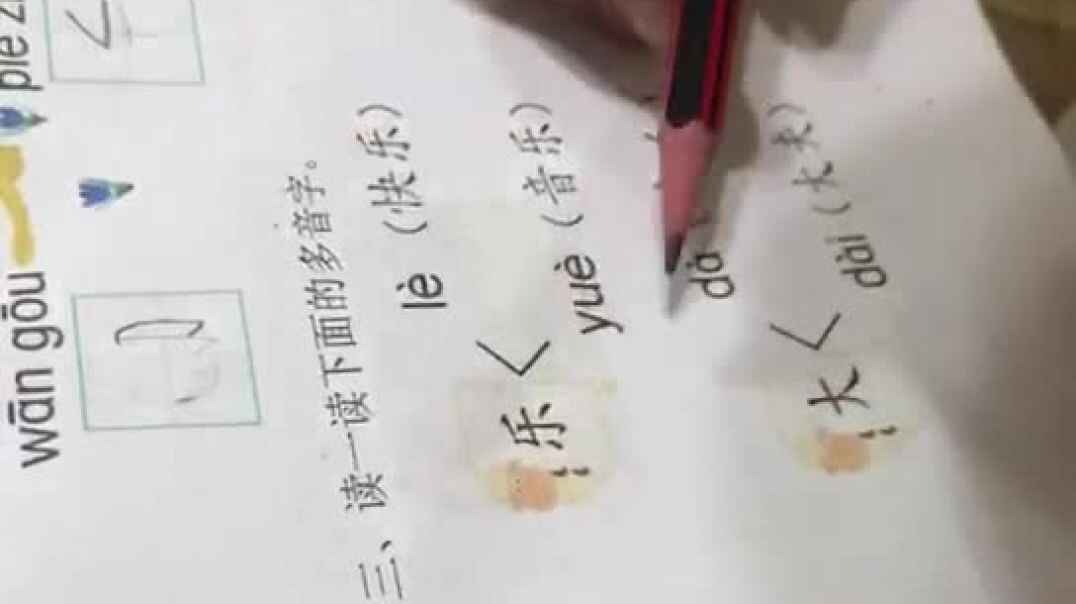 piě
wān gōu
三、读一读下面的多音字。
lè（快乐）
乐
yuè（音乐）
dà
大
dài（大夫）